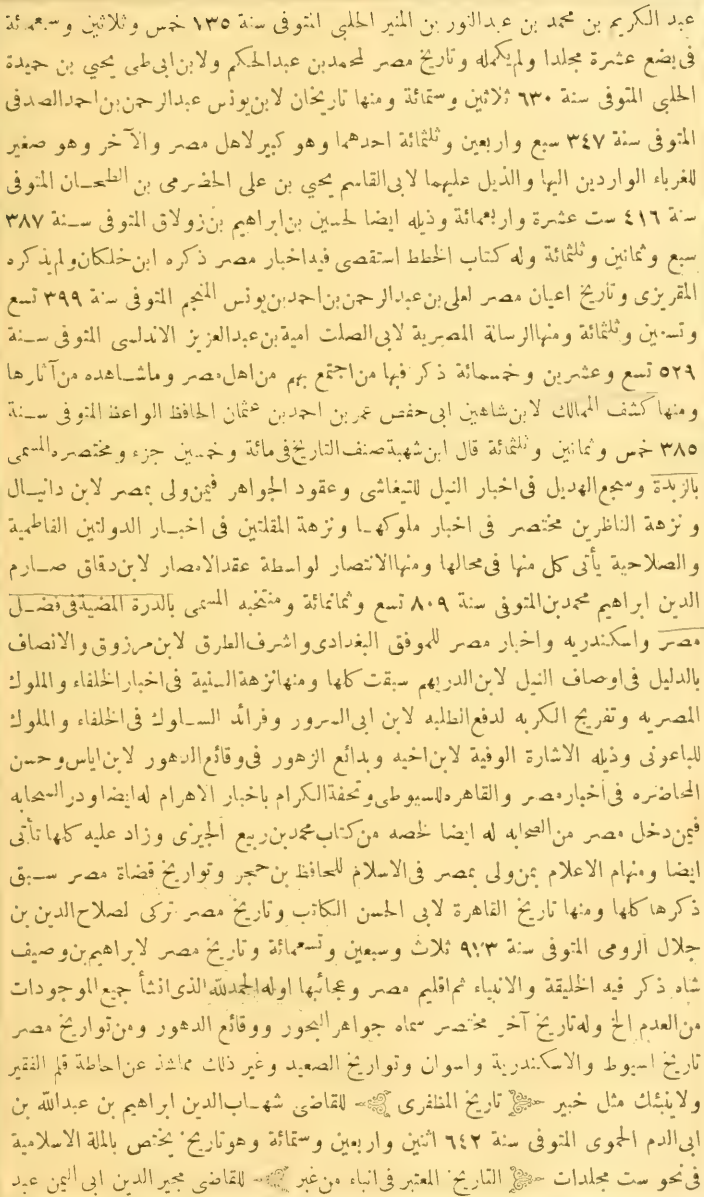 عبد الكريم بن محمد بن عبدالنور بن المنير الحلبى المتوفى سنة ١٣٥ خمس وثلاثين وسبعمائة
فى بضع عشرة مجلدا ولم يكمله وتاريخ مصر لمحمد بن عبدالحكم ولابن ابى طى يحيى بن حميدة
الحلبى المتوفى سنة ٦٣٠ ثلاثين وستمائة ومنها تاريخان لابن يونس عبدالرحمن بن احمد الصدفى
المتوفى سنة ٣٤٧ سبع واربعين وثلثمائة احدهما وهو كبير لاهل مصر والآخر وهو صغير
للغرباء الواردين اليها والذيل عليهما لابى القاسم يحيى بن على الحضرمى بن الطحان المتوفى
سنة ٤١٦ ست عشرة واربعمائة وذيله ايضا لحسين بن ابراهيم بن زولاق المتوفى سنة ٣٨٧
سبع وثمانين وثلثمائة وله كتاب الخطط استقصى فيه اخبار مصر ذكره ابن خلكان ولم يذكره
المقريزى وتاريخ اعيان مصر لعلى بن عبدالرحمن بن احمد بن يونس المنجم المتوفى سنة ٣٩٩ تسع
وتسعين وثلثمائة ومنها الرسالة المصرية لابى الصلت امية بن عبدالعزيز الاندلسى المتوفى سنة
٥٢٩ تسع وعشرين وخمسمائة ذكر فيها من اجتمع بهم من اهل مصر وماشاهده من آثارها
ومنها كشف الممالك لابن شاهين ابى حفص عمر بن احمد بن عثمان الحافظ الواعظ المتوفى سنة
٣٨٥ خمس وثمانين وثلثمائة قال ابن شهبة صنف التاريخ فى مائة وخمسين جزء ومختصره المسمى
بالزبدة وسجع الهديل فى اخبار النيل للتيفاشى وعقود الجواهر فيمن ولى بمصر لابن دانيال
ونزهة الناظرين مختصر فى اخبار ملوكها ونزهة المقلتين فى اخبار الدولتين الفاطمية
والصلاحية يأتى كل منها فى محالها ومنها الانتصار لواسطة عقدالامصار لابن دقاق صارم
الدين ابراهيم محمد بن المتوفى سنة ٨٠٩ تسع وثمانمائة ومنتخبه المسمى بالدرة المضية فى فضل
مصر واسكندريه واخبار مصر للموفق البغدادى واشرف الطرق لابن مرزوق والانصاف
بالدليل فى اوصاف النيل لابن الدريهم سبقت كلها ومنها نزهة السنية فى اخبار الخلفاء والملوك
المصريه وتفريج الكربه لدفع الطلبه لابن ابى السرور وفرائد السلوك فى الخلفاء والملوك
للباعونى وذيله الاشارة الوفية لابن اخيه وبدائع الزهور فى وقائع الدهور لابن اياس وحسن
المحاضره فى اخبار مصر والقاهره للسيوطى وتحفة الكرام باخبار الاهرام له ايضا ودر السحابه
فيمن دخل مصر من الصحابه له ايضا لخصه من كتاب محمد بن ربيع الجيزى وزاد عليه كلها تأتى
ايضا ومنهام الاعلام بمن ولى بمصر فى الاسلام للحافظ بن حجر وتواريخ قضاة مصر سبق
ذكرها كلها ومنها تاريخ القاهرة لابى الحسن الكاتب وتاريخ مصر تركى لصلاح الدين بن
جلال الرومى المتوفى سنة ٩٧٣ ثلاث وسبعين وتسعمائة وتاريخ مصر لابراهيم بن وصيف
شاه ذكر فيه الخليقة والانبياء ثم اقليم مصر وعجائبها اوله الحمدلله الذى انشأ جميع الموجودات
من العدم الخ وله تاريخ آخر مختصر سماه جواهر البحور ووقائع الدهور ومن تواريخ مصر
تاريخ اسيوط والاسكندرية واسوان وتواريخ الصعيد وغير ذلك مماشذ عن احاطة قلم الفقير
ولاينبئك مثل خبير تاريخ المظفرى للقاضى شهاب الدين ابراهيم بن عبدالله بن
ابى الدم الحموى المتوفى سنة ٦٤٢ اثنين واربعين وستمائة وهو تاريخ يختص بالملة الاسلامية
فى نحو ست مجلدات التاريخ المعتبر فى انباء من غبر للقاضى مجير الدين ابى اليمن عبد